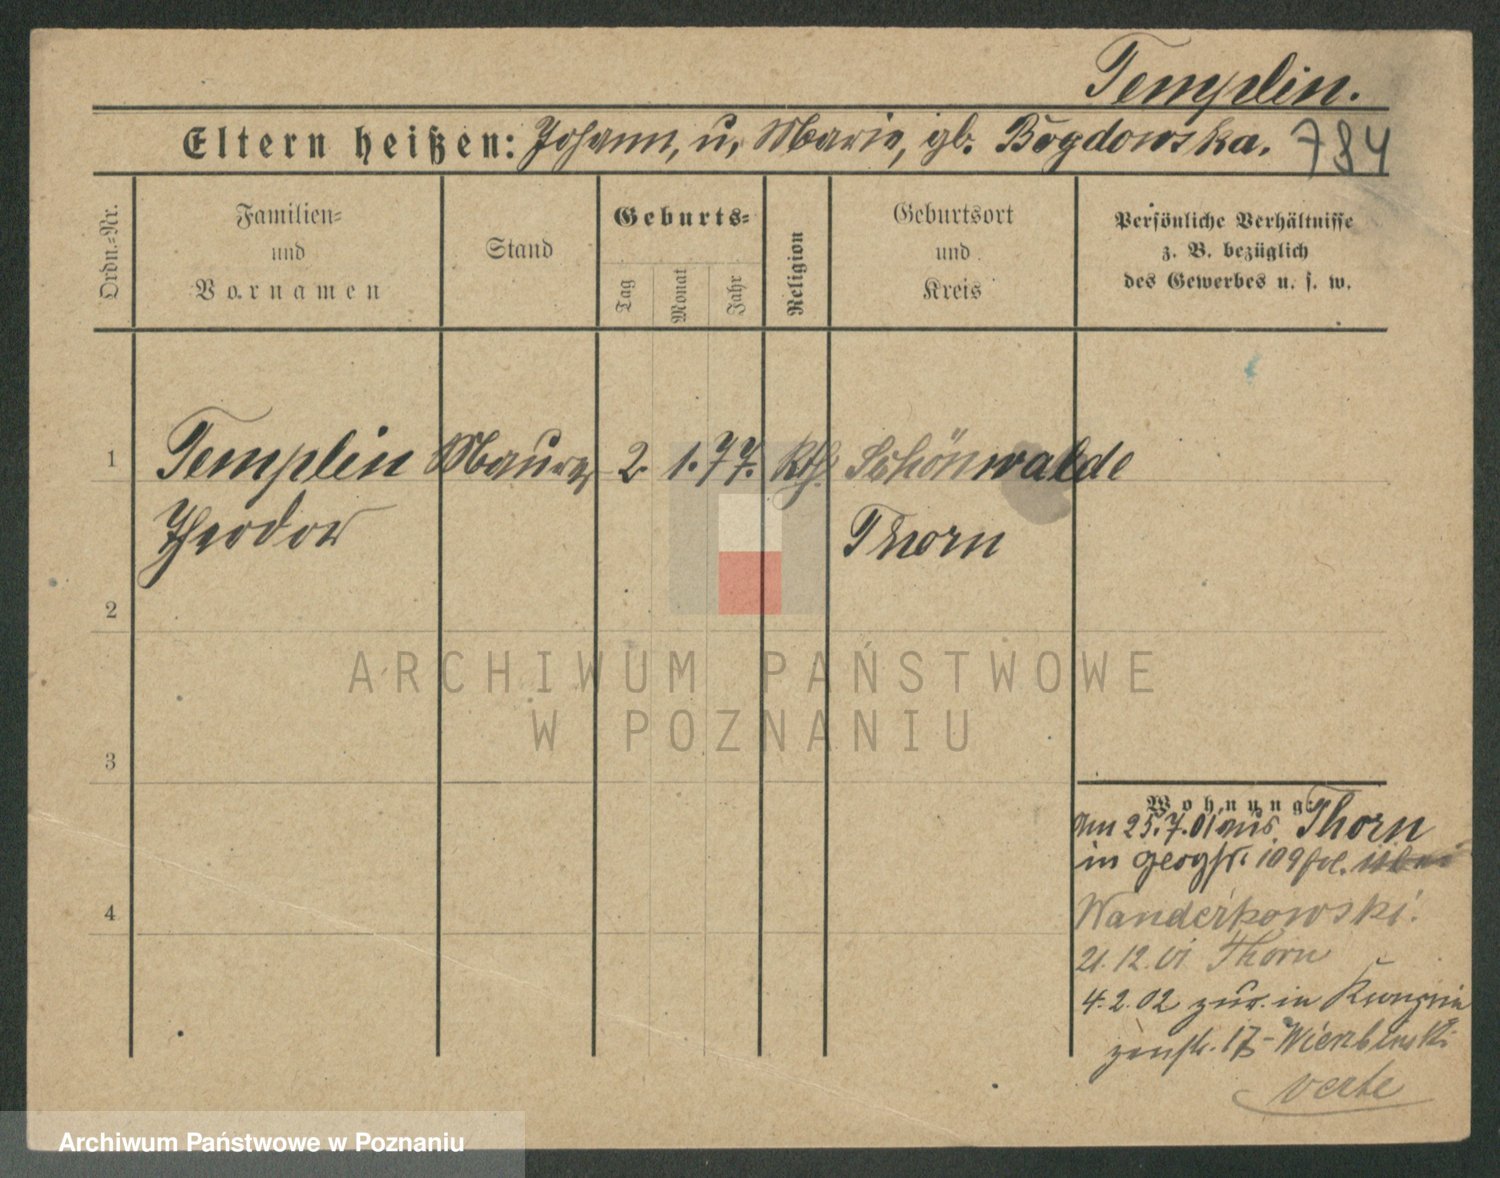 Templin.
Eltern heißen: Johann, u, Marie, gb. Bogdowska. 784
Ordn.=Nr.
Familien=
und
Vornamen
Stand
Geburts=
Tag
Monat
Jahr
Religion
Geburtsort
und
Kreis
Persönliche Verhältnisse
z. B. bezüglich
des Gewerbes u. s. w.
1 Templin Maurer 2. 1. 77. Kth. Schönwalde
Theodor Thorn
2
ARCHIWUM PAŃSTWOWE
W POZNANIU
3
Wohnung:
am 25.7.01 aus Thorn
in 109
Wanderkowski.
21.12.01 Thorn
4.2.02 zur. in
17 - Wierzbinski
verte
4
Archiwum Państwowe w Poznaniu